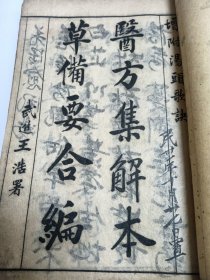 增附湯頭歌訣
醫方集解本
草備要合編
武進王浩署